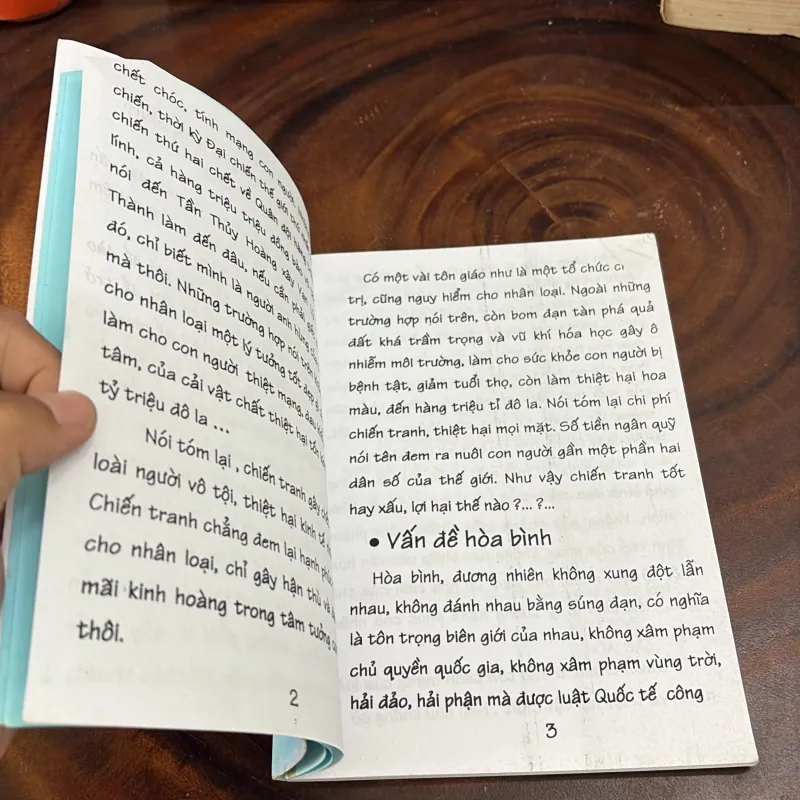 chết chóc, tính mạng con người
chiến, thời kỳ Đại chiến thế giới thứ
chiến thứ hai chết về Quân đội hàng
lính, cả hàng triệu triệu đồng bào
nói đến Tần Thủy Hoàng xây Vạn
Thành làm đến đâu, nếu cần phải
đó, chỉ biết mình là người anh hùng
mà thôi. Những trường hợp nói trên
cho nhân loại một lý tưởng tốt đẹp
làm cho con người thiệt mạng, đau
tâm, của cải vật chất thiệt hại tốn
tỷ triệu đô la ...
Nói tóm lại , chiến tranh gây
loài người vô tội, thiệt hại kinh tế,
Chiến tranh chẳng đem lại hạnh
cho nhân loại, chỉ gây hận thù và
mãi kinh hoàng trong tâm tưởng
thôi.
2
Có một vài tôn giáo như là một tổ chức
trị, cũng nguy hiểm cho nhân loại. Ngoài những
trường hợp nói trên, còn bom đạn tàn phá quả
đất khá trầm trọng và vũ khí hóa học gây ô
nhiễm môi trường, làm cho sức khỏe con người bị
bệnh tật, giảm tuổi thọ, còn làm thiệt hại hoa
màu, đến hàng triệu tỉ đô la. Nói tóm lại chi phí
chiến tranh, thiệt hại mọi mặt. Số tiền ngân quỹ
nói tên đem ra nuôi con người gần một phần hai
dân số của thế giới. Như vậy chiến tranh tốt
hay xấu, lợi hại thế nào ?... ?...
• Vấn đề hòa bình
Hòa bình, đương nhiên không xung đột lẫn
nhau, không đánh nhau bằng súng đạn, có nghĩa
là tôn trọng biên giới của nhau, không xâm phạm
chủ quyền quốc gia, không xâm phạm vùng trời,
hải đảo, hải phận mà được luật Quốc tế công
3